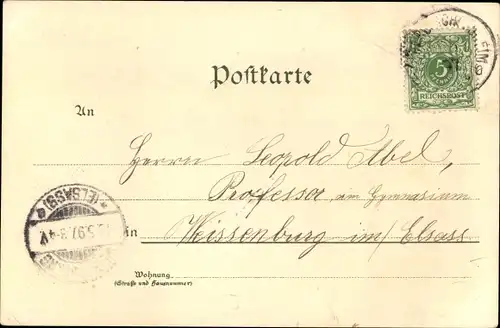 Postkarte
5
REICHSPOST
An
Herrn Leopold Abel,
Professor am Gymnasium
in Weissenburg im Elsass
(ELSASS)
5.97. 3-4
Wohnung
(Straße und Hausnummer)